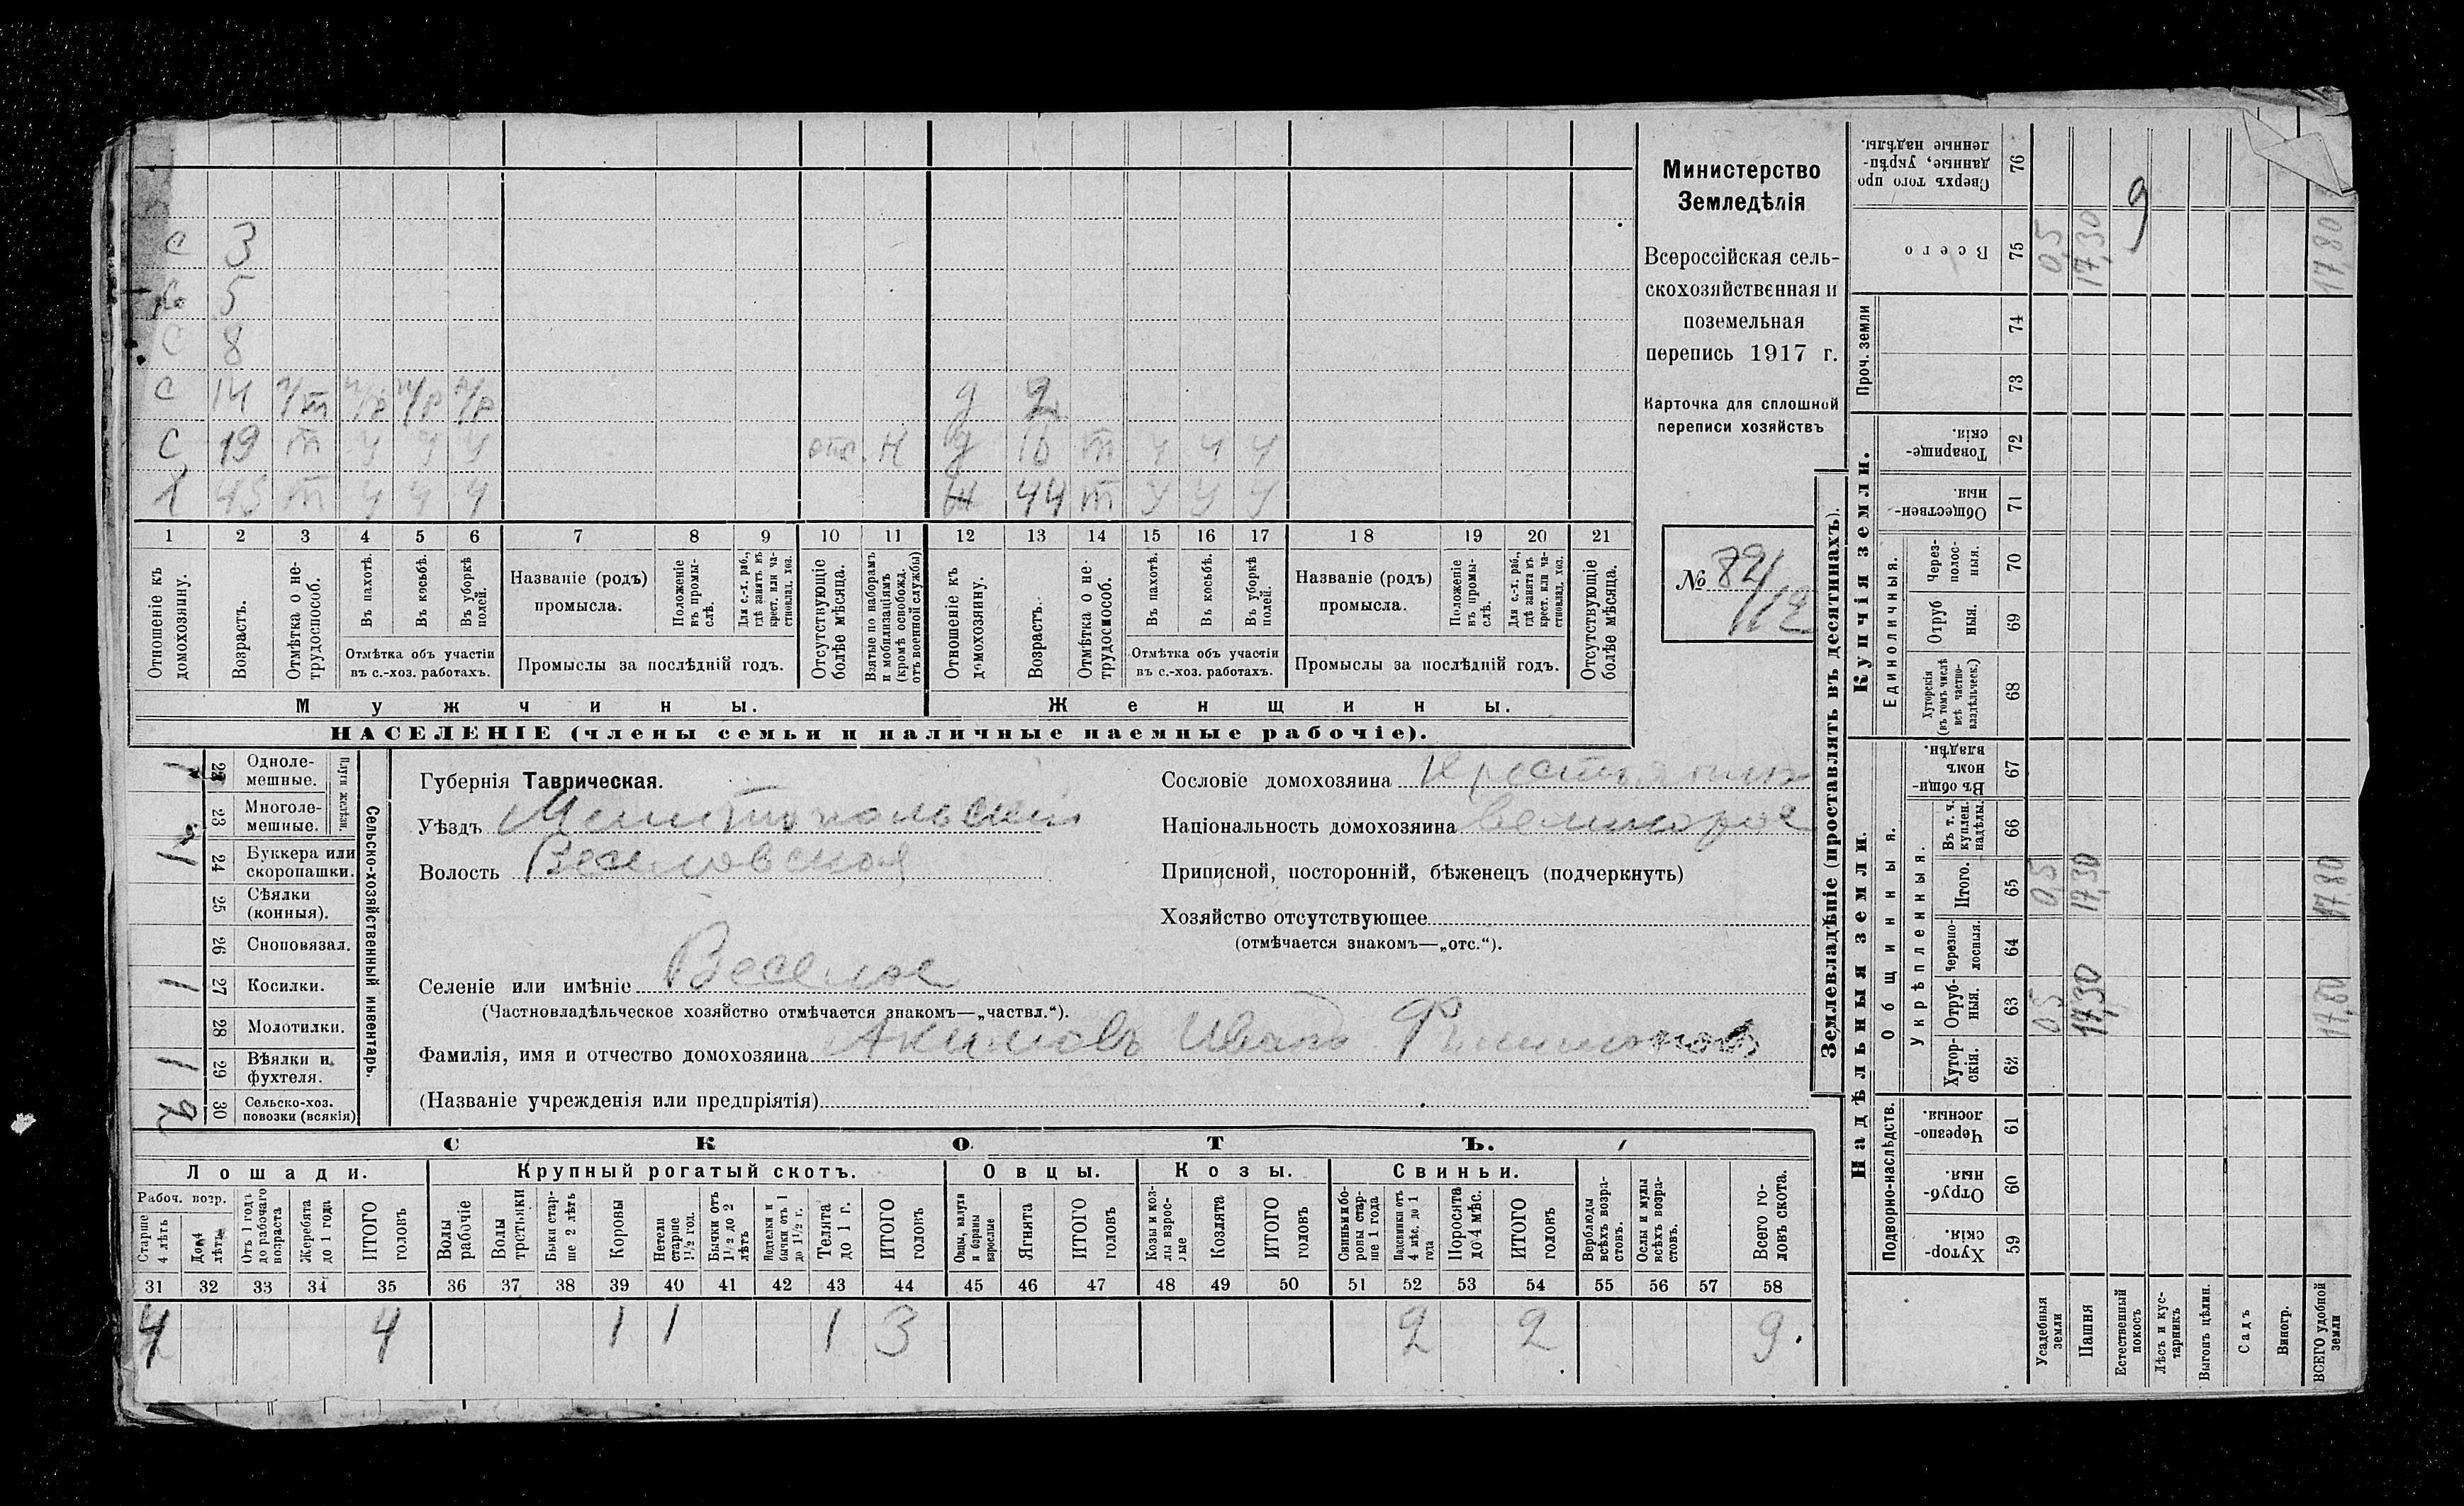 с 3
с 5
с 8
с 14 ч/т ч/р ч/р ч/р д 2
с 19 т ч ч ч отс. н д 16 т ч ч ч
х 45 т ч ч ч ж 44 т ч ч ч
1 2 3 4 5 6 7 8 9 10 11 12 13 14 15 16 17 18 19 20 21
Отношеніе къ домохозяину.
Возрастъ.
Отмѣтка о не-трудоспособ.
Въ пахотѣ.
Въ косьбѣ.
Въ уборкѣ полей.
Отмѣтка объ участіи
въ с.-хоз. работахъ.
Названіе (родъ)
промысла.
Положеніе въ промы-слѣ.
Для с.-х. раб., гдѣ занятъ въ крест. или ча-стновлад. хоз.
Промыслы за послѣдній годъ.
Отсутствующіе болѣе мѣсяца.
Взятые по наборамъ и мобилизаціямъ (кромѣ освобожд. отъ военной службы)
Отношеніе къ домохозяину.
Возрастъ.
Отмѣтка о не-трудоспособ.
Въ пахотѣ.
Въ косьбѣ.
Въ уборкѣ полей.
Отмѣтка объ участіи
въ с.-хоз. работахъ.
Названіе (родъ)
промысла.
Положеніе въ промы-слѣ.
Для с.-х. раб., гдѣ занята въ крест. или ча-стновлад. хоз.
Промыслы за послѣдній годъ.
Отсутствующіе болѣе мѣсяца.
Мужчины. Женщины.
НАСЕЛЕНІЕ (члены семьи и наличные наемные рабочіе).
Министерство
Земледѣлія
Всероссійская сель-
скохозяйственная и
поземельная
перепись 1917 г.
Карточка для сплошной
переписи хозяйствъ
№ 84/112
Сельско-хозяйственный инвентарь.
Плуги желѣзн.
1 22 Одноле-мешные.
23 Многоле-мешные.
1 24 Буккера или скоропашки.
25 Сѣялки (конныя).
26 Сноповязал.
1 27 Косилки.
28 Молотилки.
1 29 Вѣялки и фухтеля.
2 30 Сельско-хоз. повозки (всякія)
Губернія Таврическая.
Уѣздъ Мелитопольскій
Волость Веселовская
Селеніе или имѣніе Веселое
(Частновладѣльческое хозяйство отмѣчается знакомъ—„частвл.“).
Фамилія, имя и отчество домохозяина Акимовъ Иванъ Филимоновъ
(Названіе учрежденія или предпріятія)
Сословіе домохозяина Крестьянинъ
Національность домохозяина великорос
Приписной, посторонній, бѣженецъ (подчеркнуть)
Хозяйство отсутствующее
(отмѣчается знакомъ—„отс.“).
СКОТЪ.
Лошади. Крупный рогатый скотъ. Овцы. Козы. Свиньи.
Рабоч. возр.
Старше 4 лѣтъ
До 4 лѣтъ
Отъ 1 года до рабочаго возраста
Жеребята до 1 года
ИТОГО головъ
Волы рабочіе
Волы третьяки
Быки стар-ше 2 лѣтъ
Коровы
Нетели старше 1½ год.
Бычки отъ 1½ до 2 лѣтъ
Подтелки и бычки отъ 1 до 1½ г.
Телята до 1 г.
ИТОГО головъ
Овцы, валухи и бараны взрослые
Ягнята
ИТОГО головъ
Козы и коз-лы взрос-лые
Козлята
ИТОГО головъ
Свиньи и бо-ровы стар-ше 1 года
Подсвинки отъ 4 мѣс. до 1 года
Поросята до 4 мѣс.
ИТОГО головъ
Верблюды всѣхъ возра-стовъ.
Ослы и мулы всѣхъ возра-стовъ.
Всего го-ловъ скота.
31 32 33 34 35 36 37 38 39 40 41 42 43 44 45 46 47 48 49 50 51 52 53 54 55 56 57 58
4 4 1 1 1 3 2 2 9.
Землевладѣніе (проставлять въ десятинахъ).
Надѣльныя земли. Купчія земли. Проч. земли
Подворно-наслѣдств.
Общинныя.
Укрѣпленныя.
Единоличныя.
Хутор-скія. 59
Отруб-ныя. 60
Черезпо-лосныя. 61
Хутор-скія. 62
Отруб-ныя. 63
Черезпо-лосныя. 64
Итого. 65
Въ т. ч. куплен. надѣлы. 66
Въ общи-номъ владѣн. 67
Хуторскія (въ томъ числѣ всѣ частно-владѣльческ.) 68
Отруб ныя. 69
Через-полос-ныя. 70
Обществен-ныя. 71
Товарище-скія. 72
73
74
Всего 75
Сверхъ того про данные, укрѣп-ленные надѣлы. 76
Усадебныя земли 0,5 0,5 0,5
Пашня 17,30 17,30 17,30
Естественный покосъ 9
Лѣсъ и кус-тарникъ
Выгонъ цѣлин.
Садъ
Виногр.
ВСЕГО удобной земли 17,80 17,80 17,80